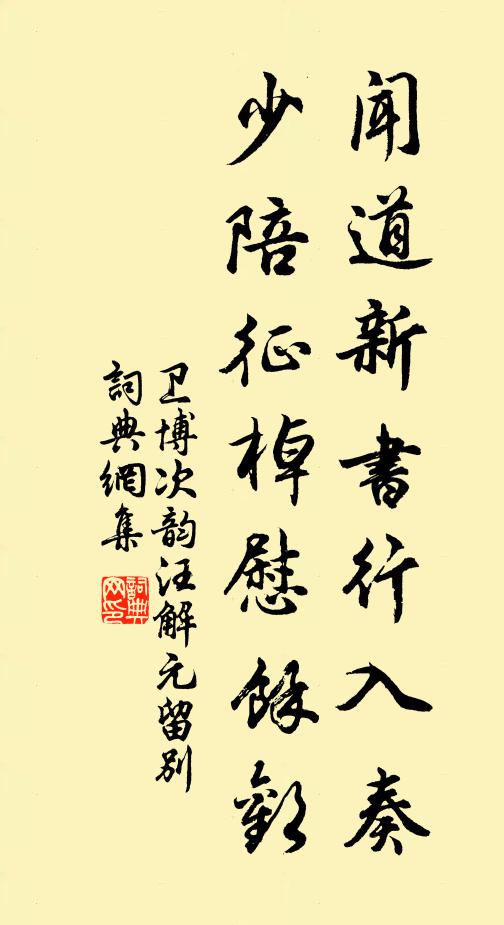 聞道新書行入奏
少陪征棹慰餘歡
卫博次韵汪解元留别
詞典網集
詞典网印